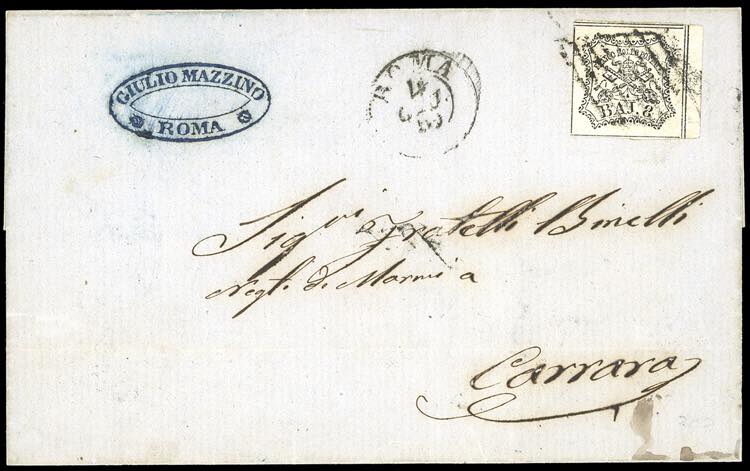 GIULIO MAZZINO
ROMA
ROMA
BAI. 8
Sigri Fratelli Binelli
Negti. di Marmi a
Carrara